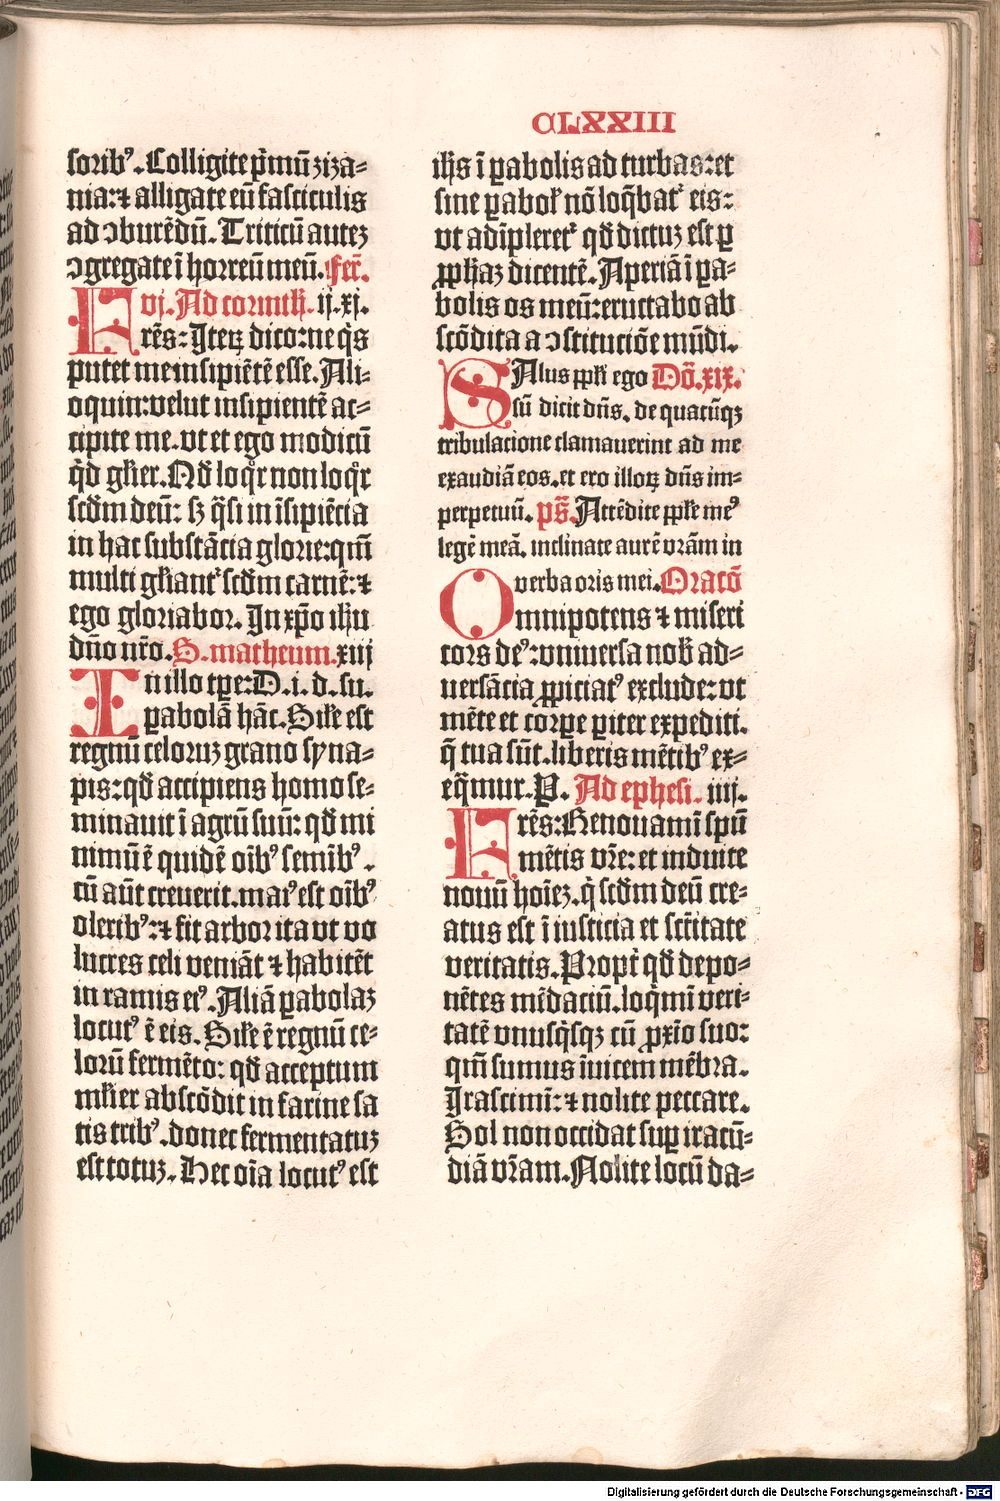 CLXXIII
soribꝰ. Colligite pͥmū ziza-
nia: ⁊ alligate eū fasciculis
ad ↄburēdū. Triticū autez
ↄgregate ī horreū meū. Fer̄.
vj. Ad corinth. ij. xj.
Frēs: Iteꝝ dico: ne qͥs
putet me insipiētē esse. Ali-
oquin: velut insipientē ac-
cipite me. vt et ego modicū
qͥd glꝛier. Qđ loqͦr non loqͦr
scd̄m deū: sꝫ qͣsi in īsipiēcia
in hac substācia glorie: qm̄
multi glꝛiantᷣ scd̄m carnē: ⁊
ego gloriabor. In xp̄o ihū
dn̄o nr̄o. S. matheum. xiij
In illo tꝑe: D. i. d. su.
ꝑabolā hāc. Sil̄e est
regnū celoruz grano syna-
pis: qđ accipiens homo se-
minauit ī agrū suū: qđ mi
nimū ē quidē oībꝰ semībꝰ.
cū aūt creuerit. maiꝰ est oībꝰ
oleribꝰ: ⁊ fit arbor ita vt vo
lucres celi veniāt ⁊ habitēt
in ramis eiꝰ. Aliā ꝑabolaz
locutꝰ ē eis. Sil̄e ē regnū ce-
lorū fermēto: qđ acceptum
ml̄ier abscōdit in farine sa
tis tribꝰ. donec fermentatuz
est totuz. Hec oīa locutꝰ est
ihs ī ꝑabolis ad turbas: et
sine ꝑabol̄ nō loqͣbatᷣ eis:
vt adīpleretᷣ qđ dictuz est ꝑ
ꝓphaz dicentē. Aperiā ī ꝑa-
bolis os meū: eructabo ab
scōdita a ↄstituciōe mūdi.
SAlus ppl̄i ego Dō. xix.
sū dicit dn̄s. de quacūqꝫ
tribulacione clamauerint ad me
exaudiā eos. et ero illoꝝ dn̄s im-
perpetuū. pš. Attēdite ppl̄e meꝰ
legē meā. inclinate aurē vrām in
verba oris mei. Oracō
Omnipotens ⁊ miseri
cors deꝰ: vniuersa nob̄ ad-
uersācia ꝓpiciatꝰ exclude: vt
mēte et corꝑe ꝑiter expediti.
q̄ tua sūt. liberis mētibꝰ ex-
eqͣmur. P. Ad ephesi. iiij.
Frēs: Renouamī spū
mētis vr̄e: et induite
nouū hoīez. qͥ scd̄m deū cre-
atus est ī iusticia et sctītate
veritatis. Proptͥ qđ depo-
nētes mēdaciū. loqͥmī veri-
tatē vnusqͥsqꝫ cū ꝓxīo suo:
qm̄ sumus īuicem mēbra.
Irascimī: ⁊ nolite peccare.
Sol non occidat suꝑ iracū-
diā vr̄am. Nolite locū da-
Digitalisierung gefördert durch die Deutsche Forschungsgemeinschaft - DFG